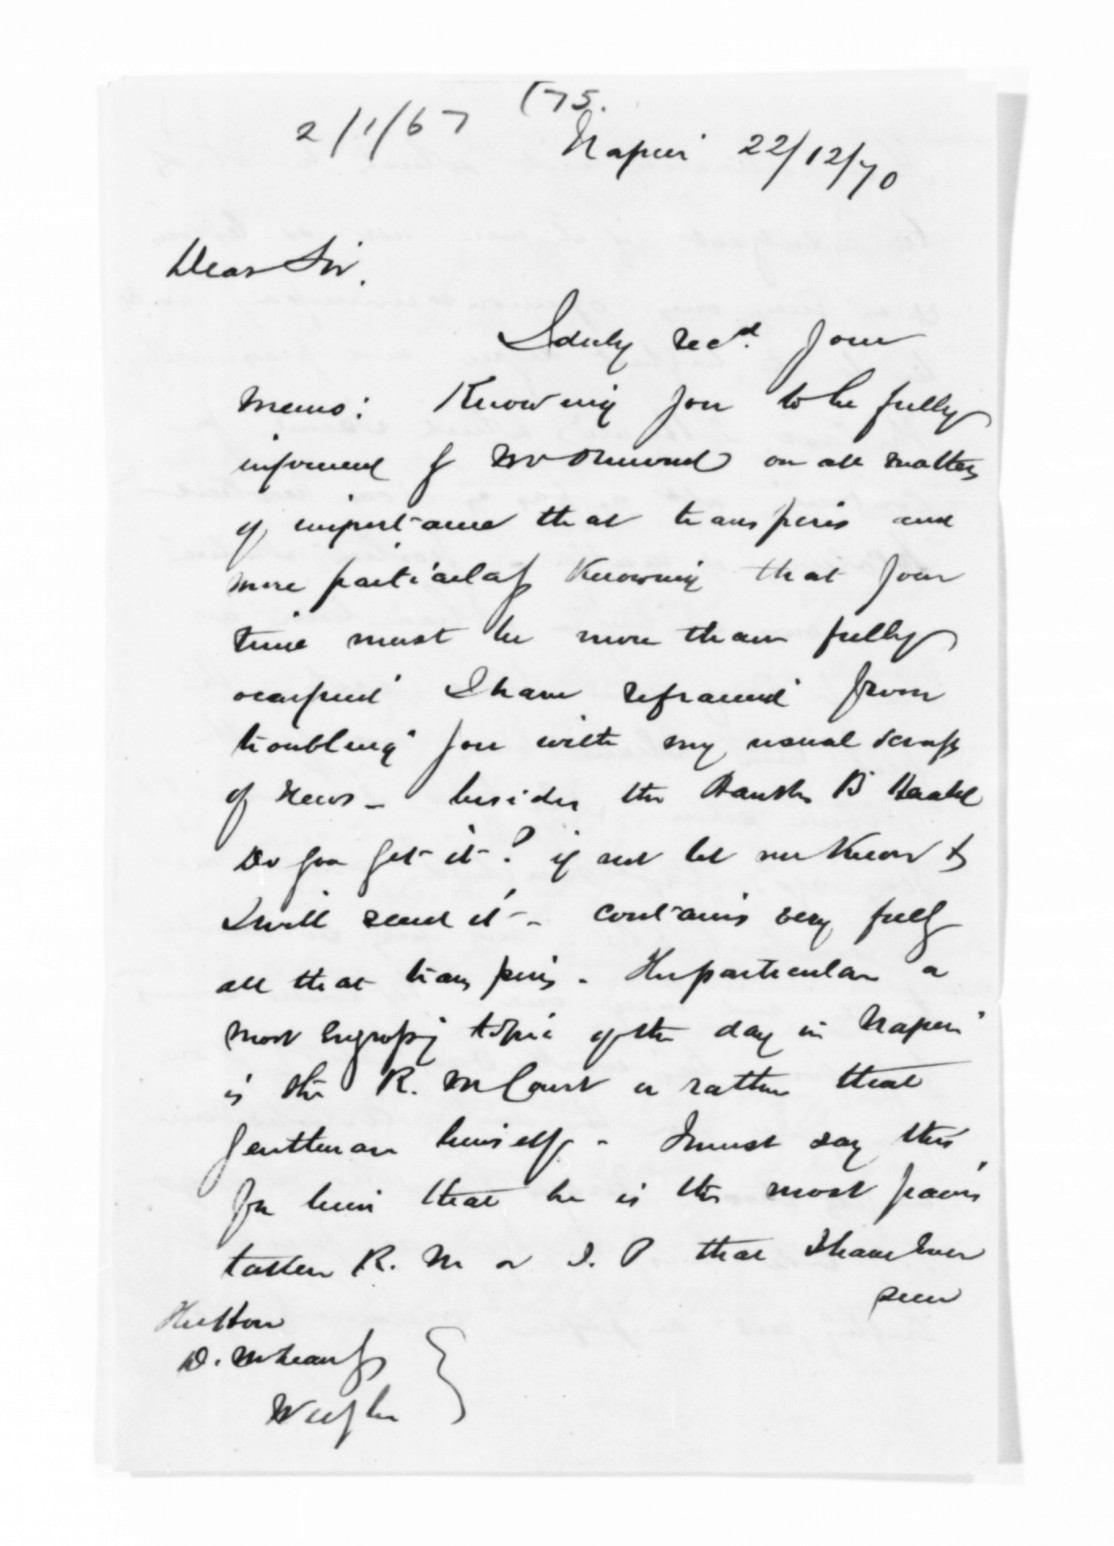 2/1/67 (75.
Napier 22/12/70
Dear Sir.
I duly recd. your
memo: Knowing you to be fully
informed of Mr Ormond on all matters
of importance that transpires and
more particularly Knowing that your
time must be more than fully
occupied I have refrained from
troubling you with my usual scraps
of News - besides the Hawkes B Herald
Do you get it? if not let me Know &
I will send it - contains very fully
all that transpires. The particular &
most engrossing topic of the day in Napier
is the R. M Court or rather that
gentleman himself - I must say this
for him that he is the most pains
taken R. M or J. P that I have ever
seen